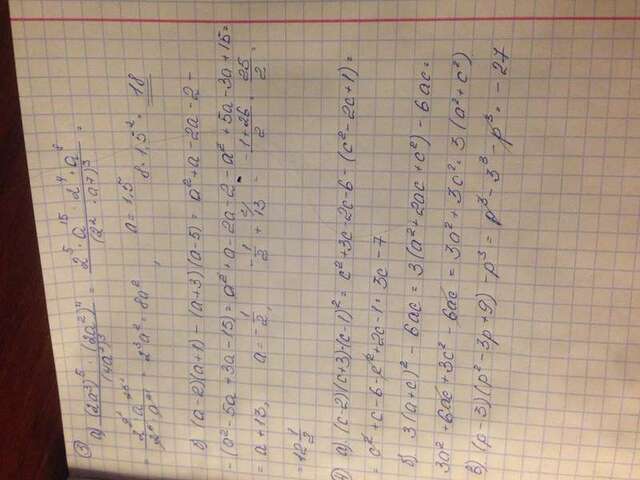 ③ а) (2a³)⁵ · (2a²)⁴ / (4a⁷)³ = 2⁵ · a¹⁵ · 2⁴ · a⁸ / (2² · a⁷)³ =
= 2⁹ · a²³ / 2⁶ · a²¹ = 2³a² = 8a², a = 1,5 8 · 1,5² = 18
б) (a-2)(a+1) - (a+3)(a-5) = a² + a - 2a - 2 -
- (a² - 5a + 3a - 15) = a² + a - 2a - 2 - a² + 5a - 3a + 15 =
= a + 13, a = - 1/2, - 1/2 + 13 = -1+26 / 2 = 25/2 =
= 12 1/2
4) а) (c-2)(c+3)-(c-1)² = c² + 3c - 2c - 6 - (c² - 2c + 1) =
= c² + c - 6 - c² + 2c - 1 = 3c - 7
б) 3(a+c)² - 6ac = 3(a² + 2ac + c²) - 6ac =
3a² + 6ac + 3c² - 6ac = 3a² + 3c² = 3(a² + c²)
в) (p-3)(p² - 3p + 9) - p³ = p³ - 3³ - p³ = - 27